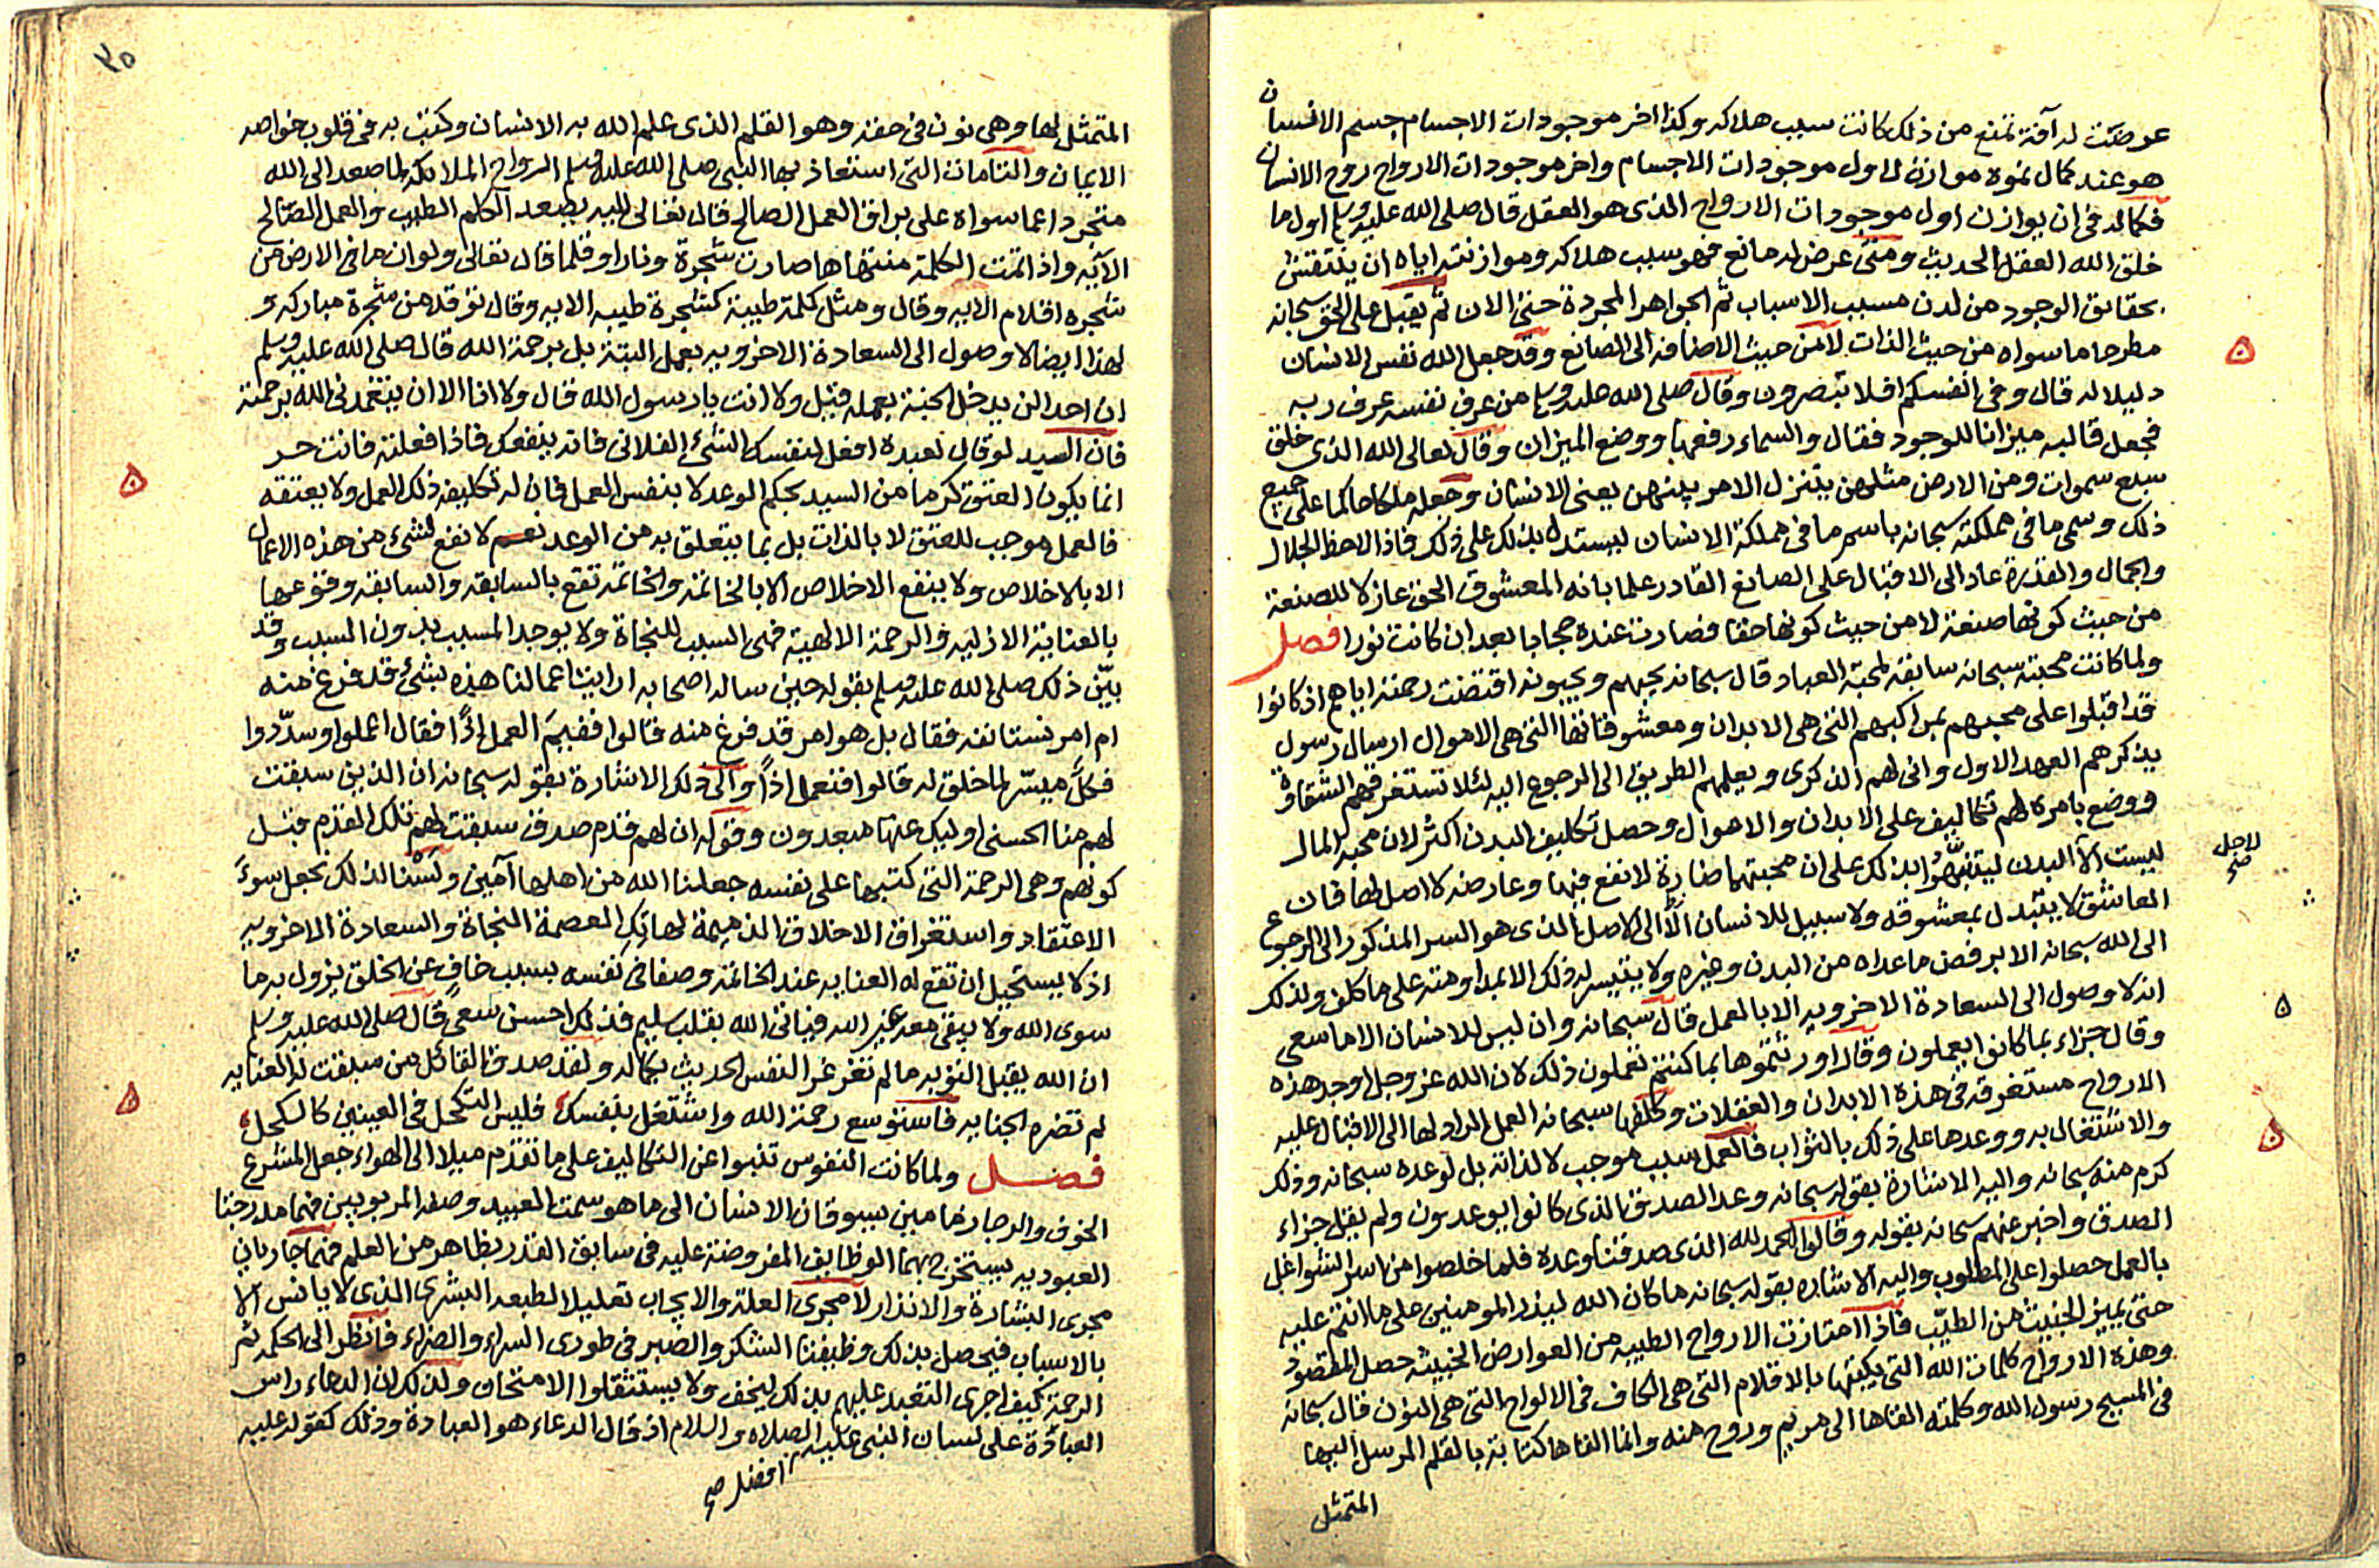 عرضت له آفة تمنع من ذلك كانت سبب هلاكه وكذا اخر موجودات الاجسام جسم الانسان
هو عند كمال نموه موازن لاول موجودات الاجسام واخر موجودات الارواح روح الانسان
فكماله فى ان يوازن اول موجودات الارواح الذى هو العقل قال صلى الله عليه وسلم اول ما
خلق الله العقل الحديث ومتى عرض له مانع فهو سبب هلاكه وموازنته اياه ان ينتقش
بحقايق الوجود من لدن مسبب الاسباب ثم الجواهر المجردة حتى الان ثم يقبل على الحق سبحانه
مطرحا ما سواه من حيث الذات لا من حيث الاضافه الى الصانع وقد جعل الله نفس الانسان
دليلا له قال وفى انفسكم افلا تبصرون وقال صلى الله عليه وسلم من عرف نفسه عرف ربه
فجعل قالبه ميزانا للوجود فقال والسماء رفعها ووضع الميزان وقال تعالى الله الذى خلق
سبع سموات ومن الارض مثلهن يتنزل الامر بينهن يعنى الانسان وجعله ملكا حاكما على جميع
ذلك وسمى ما فى مملكته سبحانه باسم ما فى مملكة الانسان ليستدل بذلك على ذلك فاذا لاحظ الجلال
والجمال والقدرة عاد الى الاقبال على الصانع القادر علما بانه المعشوق الحق عازلا للصنعة
من حيث كونها صنعة لا من حيث كونها حقا فصارت عنده حجابا بعد ان كانت نورا فصل
ولما كانت محبته سبحانه سابقة لمحبة العباد قال سبحانه يحبهم ويحبونه اقتضت رحمته اياهم اذ كانوا
قد اقبلوا على محبهم بمراكبهم التى هى الابدان ومعشوقاتها التى هى الاموال ارسال رسول
يذكرهم العهد الاول وانى لهم الذكرى ويعلمهم الطريق الى الرجوع اليه لئلا تستغرقهم الشقاوة
ووضع بامره لهم تكاليف على الابدان والاموال وحصل تكليف البدن اكثر لان محبة المال
ليست الا البدن ليتنبهوا بذلك على ان محبتهما ضارة لا نفع فيها وعارضه لا اصل لها فان
لاجل صح
العاشق لا يتبدل بمعشوقه ولا سبيل للانسان الا الى الاصل الذى هو السر المذكور الى الرجوع
الى الله سبحانه الا برفض ما عداه من البدن وغيره ولا يتيسر له ذلك الا بمداومته على ما كلف ولذلك
انه لا وصول الى السعادة الاخرويه الا بالعمل قال سبحانه وان ليس للانسان الا ما سعى
وقال جزاء بما كانوا يعملون وقال اورثتموها بما كنتم تعملون ذلك لان الله عز وجل اوجد هذه
الارواح مستغرقه فى هذه الابدان والغفلات وكلفها سبحانه العمل الراد لها الى الاقبال عليه
والاشتغال به ووعدها على ذلك بالثواب فالعمل سبب موجب لا لذاته بل لوعده سبحانه وذلك
كرم منه سبحانه واليه الاشارة بقوله سبحانه وعد الصدق الذى كانوا يوعدون ولم يقل جزاء
الصدق واخبر عنهم سبحانه بقوله وقالوا الحمد لله الذى صدقنا وعده فلما خلصوا من اسر الشواغل
بالعمل حصلوا على المطلوب واليه الاشاره بقوله سبحانه ما كان الله ليذر المومنين على ما انتم عليه
حتى يميز الخبيث من الطيب فاذا امتازت الارواح الطيبه من العوارض الخبيثه حصل المقصود
وهذه الارواح كلمات الله التى يكتبها بالاقلام التى هى الكاف فى الالواح التى هى النون قال سبحانه
فى المسيح رسول الله وكلمته القاها الى مريم وروح منه وانما القاها كتابة بالقلم المرسل اليها
المتمثل
٢٥
المتمثل لها وهى نون فى حقه وهو القلم الذى علم الله به الانسان وكتب به فى قلوب خواصه
الايمان والتامات التى استعاذ بها النبى صلى الله عليه وسلم ارواح الملائكه لما صعد الى الله
متجردا عما سواه على براق العمل الصالح قال تعالى اليه يصعد الكلم الطيب والعمل الصالح
الآيه واذا تمت الكلمة منتهاها صارت شجرة ونارا وقلما قال تعالى ولو ان ما فى الارض من
شجره اقلام الايه وقال ومثل كلمة طيبة كشجرة طيبه الايه وقال توقد من شجرة مباركه و
لهذا ايضا لا وصول الى السعادة الاخرويه بعمل البتة بل برحمة الله قال صلى الله عليه وسلم
ان احدا لن يدخل الجنة بعمله قيل ولا انت يا رسول الله قال ولا انا الا ان يتغمدنى الله برحمته
فان السيد لو قال لعبده افعل لنفسك الشئ الفلانى فانه ينفعك فاذا فعلته فانت حر
انما يكون العتق كرما من السيد بحكم الوعد لا بنفس العمل فان له تكليفه ذلك العمل ولا يعتقه
فالعمل موجب للعتق لا بالذات بل بما يتعلق به من الوعد نعم لا نفع لشئ من هذه الاعمال
الا بالاخلاص ولا ينفع الاخلاص الا بالخاتمة والخاتمة تقع بالسابقه والسابقة وقوعها
بالعناية الازليه والرحمة الالهية فهى السبب للنجاة ولا يوجد المسبب بدون السبب وقد
بيّن ذلك صلى الله عليه وسلم بقوله حين ساله اصحابه ارايت اعمالنا هذه بشئ قد فرغ منه
ام امر نستانفه فقال بل هو امر قد فرغ منه قالوا ففيم العمل اذًا فقال اعملوا وسدّدوا
فكلّ ميسّر لما خلق له قالوا فنعمل اذاً والى ذلك الاشارة بقوله سبحانه ان الذين سبقت
لهم منا الحسنى اوليك عنها مبعدون وقوله ان لهم قدم صدق سبقت لهم تلك القدم قبل
كونهم وهى الرحمة التى كتبها على نفسه جعلنا الله من اهلها آمين ولسنا لذلك نجعل سوءَ
الاعتقاد واستغراق الاخلاق الذميمة لهاتك العصمة النجاة والسعادة الاخرويه
اذ لا يستحيل ان تقع له العنايه عند الخاتمة وصفا فى نفسه بسبب خافٍ عن الخلق يزول به ما
سوى الله ولا يبقى معه غير الله فياتى الله بقلب سليم فذلك احسن سعى قال صلى الله عليه وسلم
ان الله يقبل التوبه ما لم تغرغر النفس الحديث بكماله ولقد صدق القائل من سبقت له العنايه
لم تضره الجنايه فاستوسع رحمة الله واشتغل بنفسك فليس التكحل فى العينين كالكحل
فصل ولما كانت النفوس تنبوا عن التكاليف على ما تقدم ميلا الى الهواء جعل الشرع
الخوف والرجا زمامين يسوقان الانسان الى ما هو سمت العبيد وصفة المربوبين فهما مدرجتا
العبوديه يستخرج بهما الوظايف المفروضة عليه فى سابق القدر بظاهر من العلم فهما جاريان
مجرى البشارة والانذار لا مجرى العلة والايجاب تعليلا لطبعه البشرى الذى لا يانس الا
بالاسباب فيحصل بذلك وظيفتا الشكر والصبر فى طورى السراء والضراء فانظر الى الحكمه ثم
الرحمة كيف اجرى التعبد عليهم بذلك ليخف ولا يستثقلوا الامتحان ولذلك ان الدعاء راس
العبادة على لسان النبى عليه الصلاه والسلام اذ قال الدعاء هو العبادة وذلك كقوله عليه
افضل ص